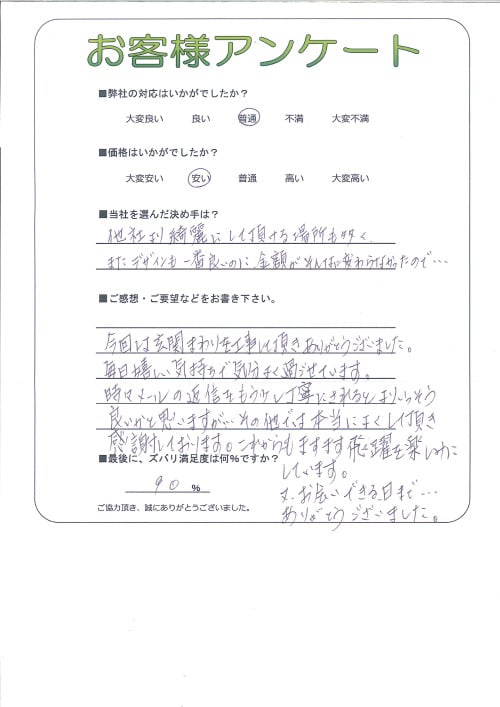 お客様アンケート
■弊社の対応はいかがでしたか？
大変良い 良い 普通 不満 大変不満
■価格はいかがでしたか？
大変安い 安い 普通 高い 大変高い
■当社を選んだ決め手は？
他社より綺麗にして頂ける場所も多く、
またデザインも一番良いのに、金額がそんなに変わらなかったので…
■ご感想・ご要望などをお書き下さい。
今回は玄関まわりを工事して頂きありがとうございました。
毎日嬉しい気持ちで気分よく過ごせています。
時々メールの返信をもう少し丁寧にされるとよりいっそう
良いかと思いますが…その他では本当によくして頂き
感謝しております。これからもますます飛躍を楽しみに
しています。
■最後に、ズバリ満足度は何％ですか？
90 %
又、お会いできる日まで…
ありがとうございました。
ご協力頂き、誠にありがとうございました。